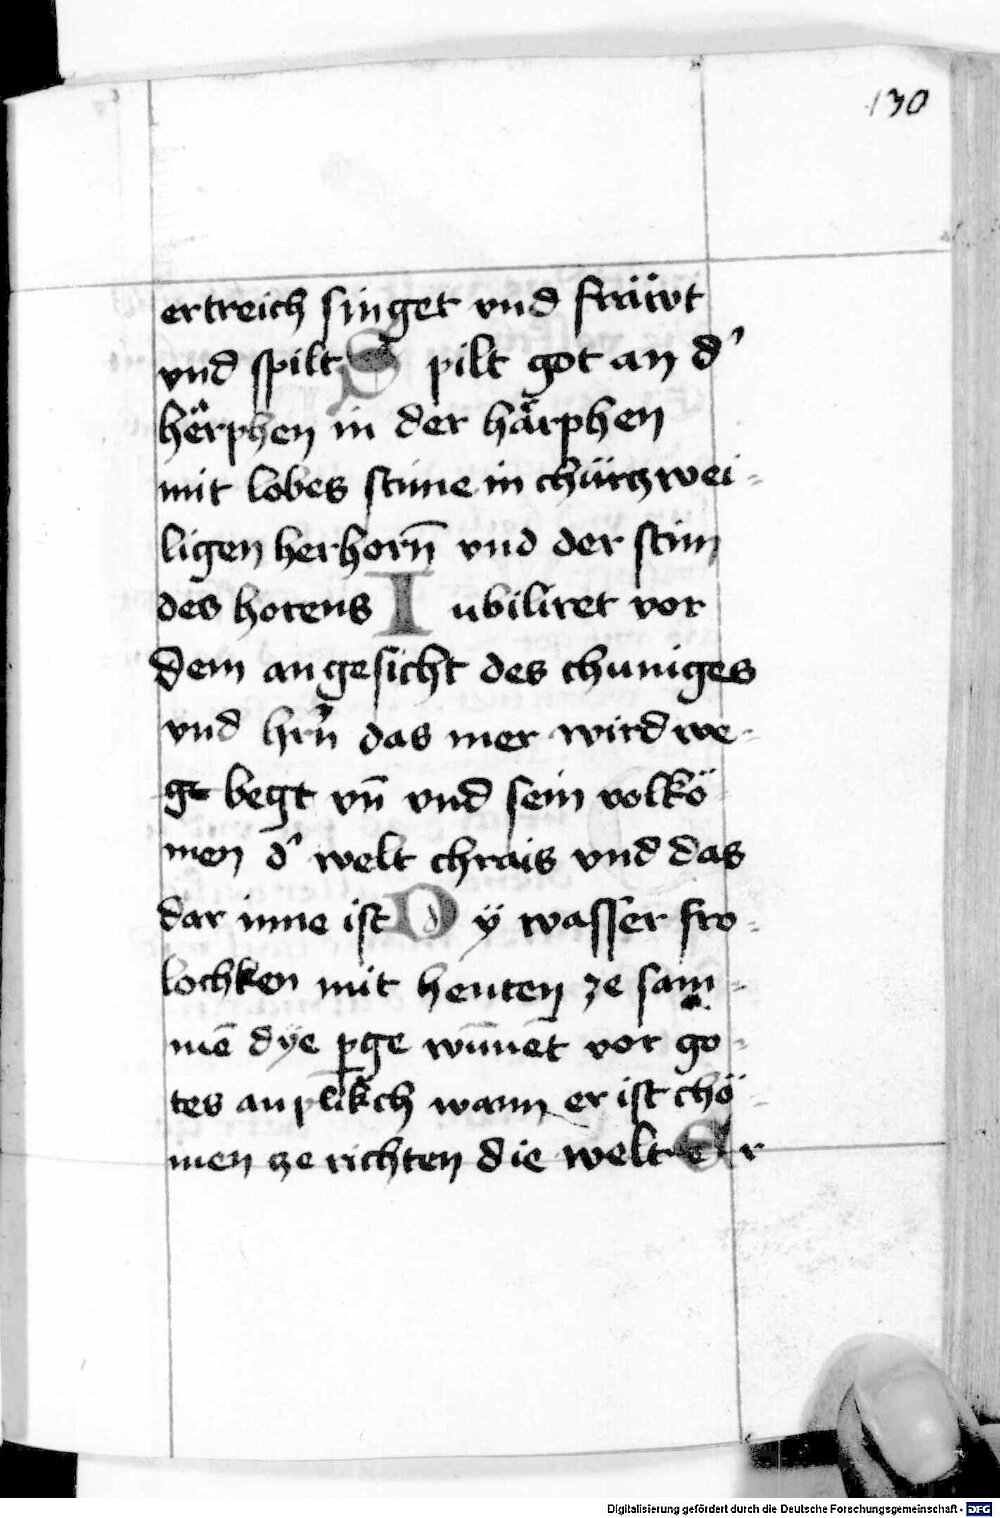 130
ertreich singet vnd fräwt
vnd spilt S pilt got an d'
härphen in der härphen
mit lobes stime in chürczwei=
ligen herhorn̄ vnd der stim
des horens I ubiliret vor
dem angesicht des chuniges
vnd hrn̄ das mer wird we=
ge begt vn̄ vnd sein volkö
men d' welt chrais vnd das
dar inne ist D y̎ wasser fro=
lochken mit henten ze sam=
mē dÿe p̱ge wūnet vor go=
tes anplikch wann er ist chö=
men cze richten die welt E r
Digitalisierung gefördert durch die Deutsche Forschungsgemeinschaft - DFG